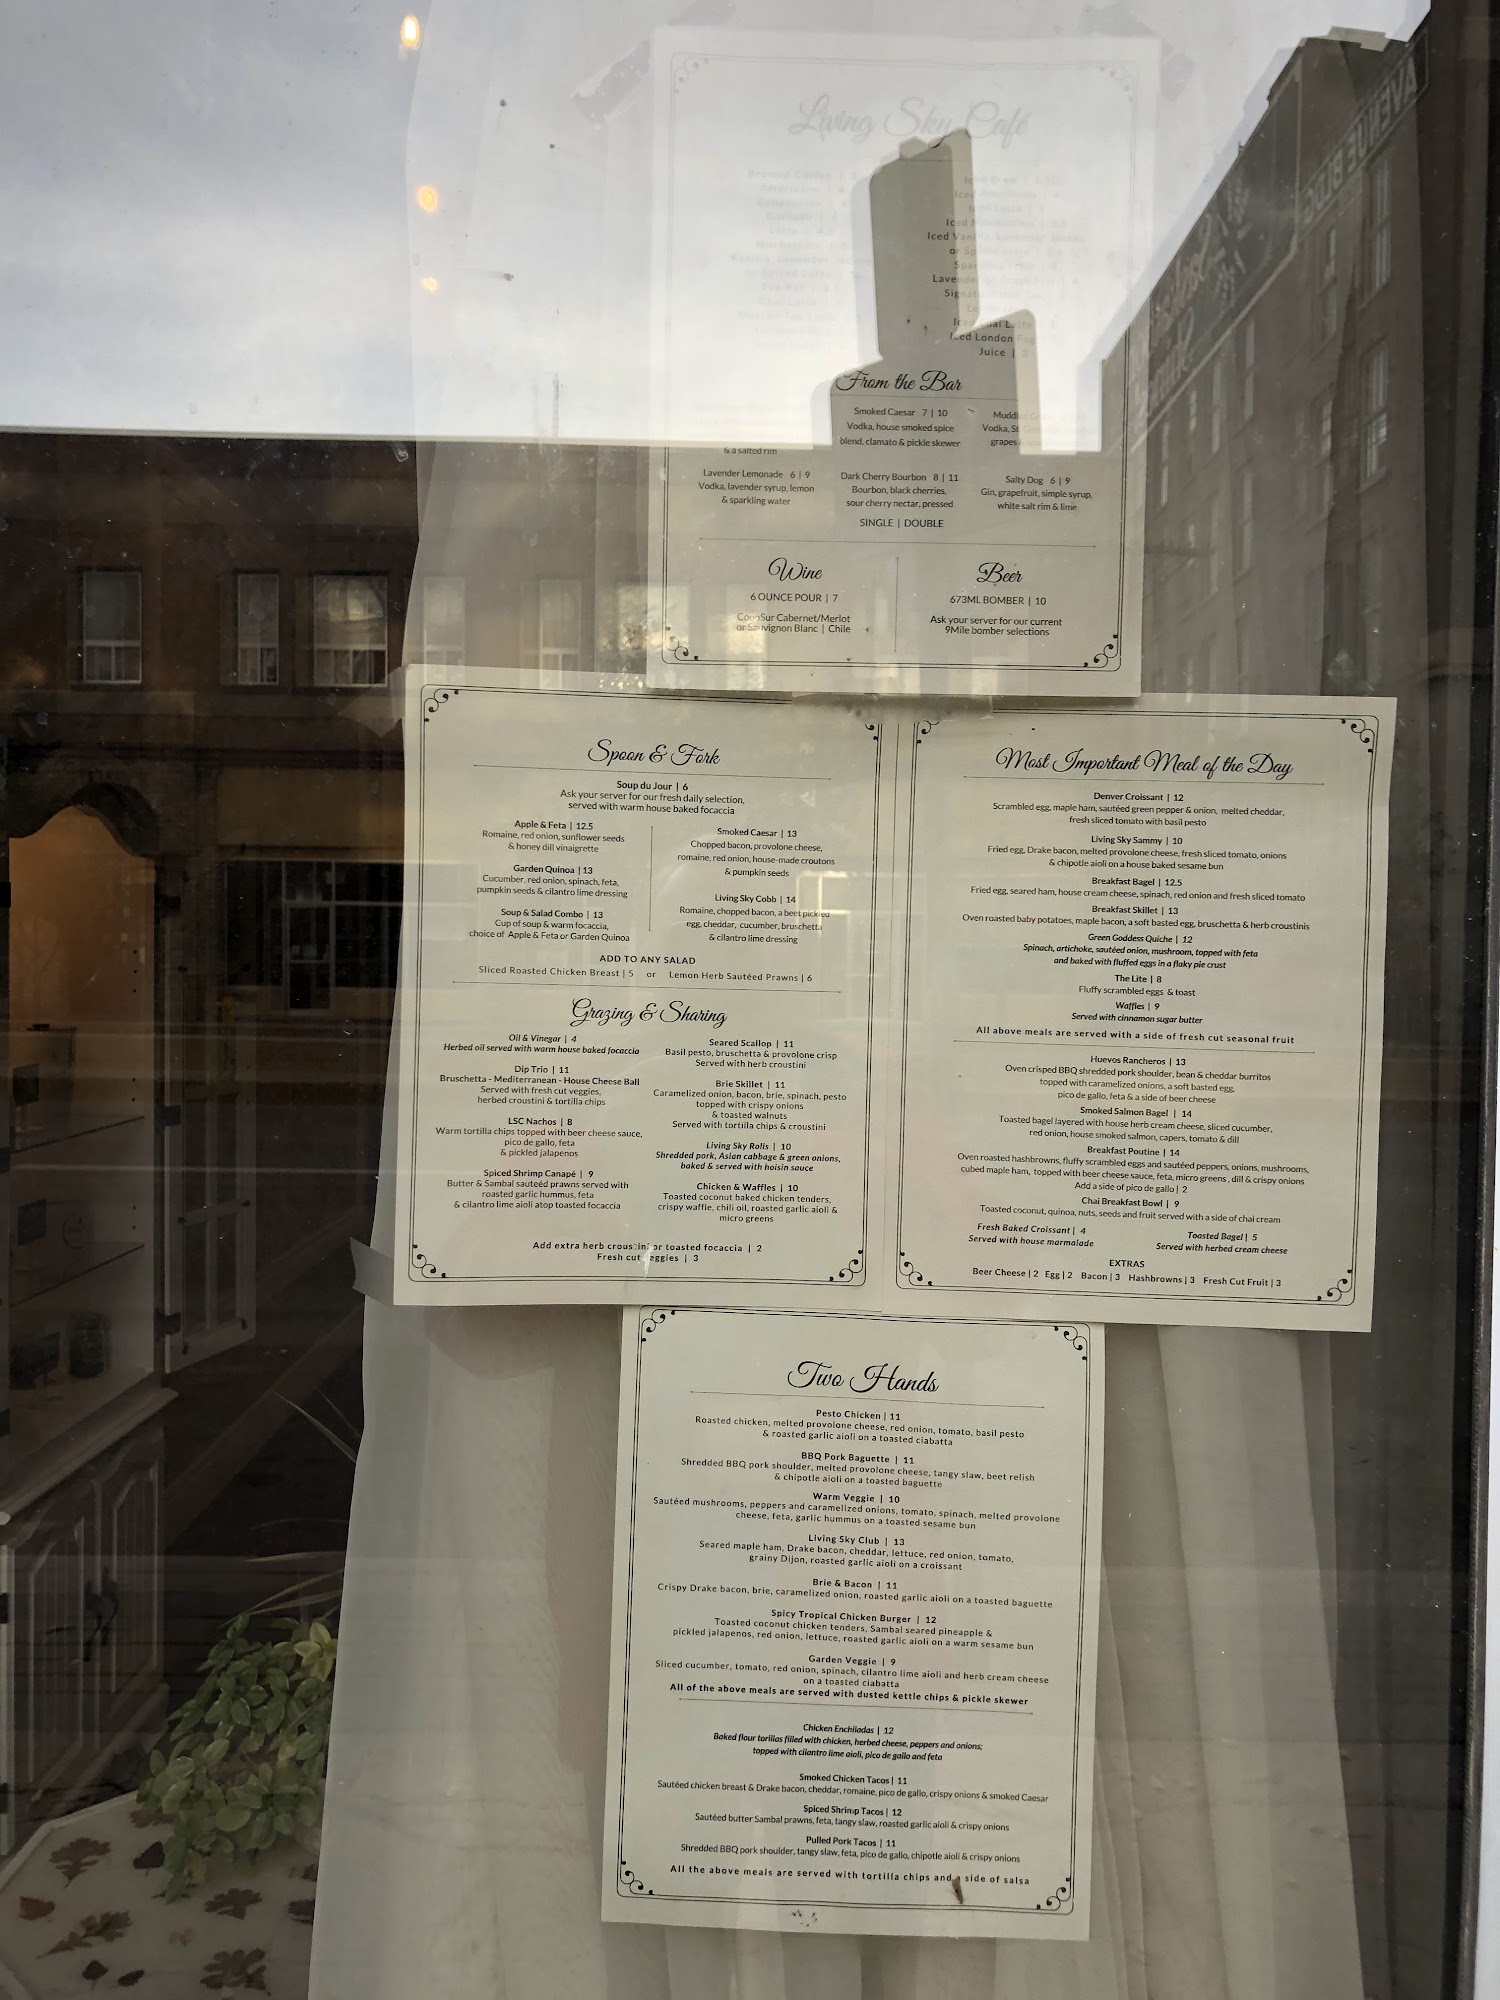 Living Sky Café
Brewed Coffee |
Americano |
Latte |
Iced Brew |
Iced Americano |
Iced Latte |
Iced
Iced
Iced Chai Latte
Iced London Fog
Juice | 3
From the Bar
Smoked Caesar 7 | 10
Vodka, house smoked spice
blend, clamato & pickle skewer
Muddled
Vodka, St
grapes
& a salted rim
Lavender Lemonade 6 | 9
Vodka, lavender syrup, lemon
& sparkling water
Dark Cherry Bourbon 8 | 11
Bourbon, black cherries,
sour cherry nectar, pressed
Salty Dog 6 | 9
Gin, grapefruit, simple syrup,
white salt rim & lime
SINGLE | DOUBLE
Wine
6 OUNCE POUR | 7
ConoSur Cabernet/Merlot
or Sauvignon Blanc | Chile
Beer
673ML BOMBER | 10
Ask your server for our current
9Mile bomber selections
AVENUE BLDG
Spoon & Fork
Soup du Jour | 6
Ask your server for our fresh daily selection,
served with warm house baked focaccia
Apple & Feta | 12.5
Romaine, red onion, sunflower seeds
& honey dill vinaigrette
Garden Quinoa | 13
Cucumber, red onion, spinach, feta,
pumpkin seeds & cilantro lime dressing
Soup & Salad Combo | 13
Cup of soup & warm focaccia,
choice of Apple & Feta or Garden Quinoa
Smoked Caesar | 13
Chopped bacon, provolone cheese,
romaine, red onion, house-made croutons
& pumpkin seeds
Living Sky Cobb | 14
Romaine, chopped bacon, a beet pickled
egg, cheddar, cucumber, bruschetta
& cilantro lime dressing
ADD TO ANY SALAD
Sliced Roasted Chicken Breast | 5 or Lemon Herb Sautéed Prawns | 6
Grazing & Sharing
Oil & Vinegar | 4
Herbed oil served with warm house baked focaccia
Dip Trio | 11
Bruschetta - Mediterranean - House Cheese Ball
Served with fresh cut veggies,
herbed croustini & tortilla chips
LSC Nachos | 8
Warm tortilla chips topped with beer cheese sauce,
pico de gallo, feta
& pickled jalapenos
Spiced Shrimp Canapé | 9
Butter & Sambal sauteéd prawns served with
roasted garlic hummus, feta
& cilantro lime aioli atop toasted focaccia
Seared Scallop | 11
Basil pesto, bruschetta & provolone crisp
Served with herb croustini
Brie Skillet | 11
Caramelized onion, bacon, brie, spinach, pesto
topped with crispy onions
& toasted walnuts
Served with tortilla chips & croustini
Living Sky Rolls | 10
Shredded pork, Asian cabbage & green onions,
baked & served with hoisin sauce
Chicken & Waffles | 10
Toasted coconut baked chicken tenders,
crispy waffle, chili oil, roasted garlic aioli &
micro greens
Add extra herb croustini or toasted focaccia | 2
Fresh cut veggies | 3
Most Important Meal of the Day
Denver Croissant | 12
Scrambled egg, maple ham, sautéed green pepper & onion, melted cheddar,
fresh sliced tomato with basil pesto
Living Sky Sammy | 10
Fried egg, Drake bacon, melted provolone cheese, fresh sliced tomato, onions
& chipotle aioli on a house baked sesame bun
Breakfast Bagel | 12.5
Fried egg, seared ham, house cream cheese, spinach, red onion and fresh sliced tomato
Breakfast Skillet | 13
Oven roasted baby potatoes, maple bacon, a soft basted egg, bruschetta & herb croustinis
Green Goddess Quiche | 12
Spinach, artichoke, sautéed onion, mushroom, topped with feta
and baked with fluffed eggs in a flaky pie crust
The Lite | 8
Fluffy scrambled eggs & toast
Waffles | 9
Served with cinnamon sugar butter
All above meals are served with a side of fresh cut seasonal fruit
Huevos Rancheros | 13
Oven crisped BBQ shredded pork shoulder, bean & cheddar burritos
topped with caramelized onions, a soft basted egg,
pico de gallo, feta & a side of beer cheese
Smoked Salmon Bagel | 14
Toasted bagel layered with house herb cream cheese, sliced cucumber,
red onion, house smoked salmon, capers, tomato & dill
Breakfast Poutine | 14
Oven roasted hashbrowns, fluffy scrambled eggs and sautéed peppers, onions, mushrooms,
cubed maple ham, topped with beer cheese sauce, feta, micro greens, dill & crispy onions
Add a side of pico de gallo | 2
Chai Breakfast Bowl | 9
Toasted coconut, quinoa, nuts, seeds and fruit served with a side of chai cream
Fresh Baked Croissant | 4
Served with house marmalade
Toasted Bagel | 5
Served with herbed cream cheese
EXTRAS
Beer Cheese | 2 Egg | 2 Bacon | 3 Hashbrowns | 3 Fresh Cut Fruit | 3
Two Hands
Pesto Chicken | 11
Roasted chicken, melted provolone cheese, red onion, tomato, basil pesto
& roasted garlic aioli on a toasted ciabatta
BBQ Pork Baguette | 11
Shredded BBQ pork shoulder, melted provolone cheese, tangy slaw, beet relish
& chipotle aioli on a toasted baguette
Warm Veggie | 10
Sautéed mushrooms, peppers and caramelized onions, tomato, spinach, melted provolone
cheese, feta, garlic hummus on a toasted sesame bun
Living Sky Club | 13
Seared maple ham, Drake bacon, cheddar, lettuce, red onion, tomato,
grainy Dijon, roasted garlic aioli on a croissant
Brie & Bacon | 11
Crispy Drake bacon, brie, caramelized onion, roasted garlic aioli on a toasted baguette
Spicy Tropical Chicken Burger | 12
Toasted coconut chicken tenders, Sambal seared pineapple &
pickled jalapenos, red onion, lettuce, roasted garlic aioli on a warm sesame bun
Garden Veggie | 9
Sliced cucumber, tomato, red onion, spinach, cilantro lime aioli and herb cream cheese
on a toasted ciabatta
All of the above meals are served with dusted kettle chips & pickle skewer
Chicken Enchiladas | 12
Baked flour torillas filled with chicken, herbed cheese, peppers and onions;
topped with cilantro lime aioli, pico de gallo and feta
Smoked Chicken Tacos | 11
Sautéed chicken breast & Drake bacon, cheddar, romaine, pico de gallo, crispy onions & smoked Caesar
Spiced Shrimp Tacos | 12
Sautéed butter Sambal prawns, feta, tangy slaw, roasted garlic aioli & crispy onions
Pulled Pork Tacos | 11
Shredded BBQ pork shoulder, tangy slaw, feta, pico de gallo, chipotle aioli & crispy onions
All the above meals are served with tortilla chips and a side of salsa